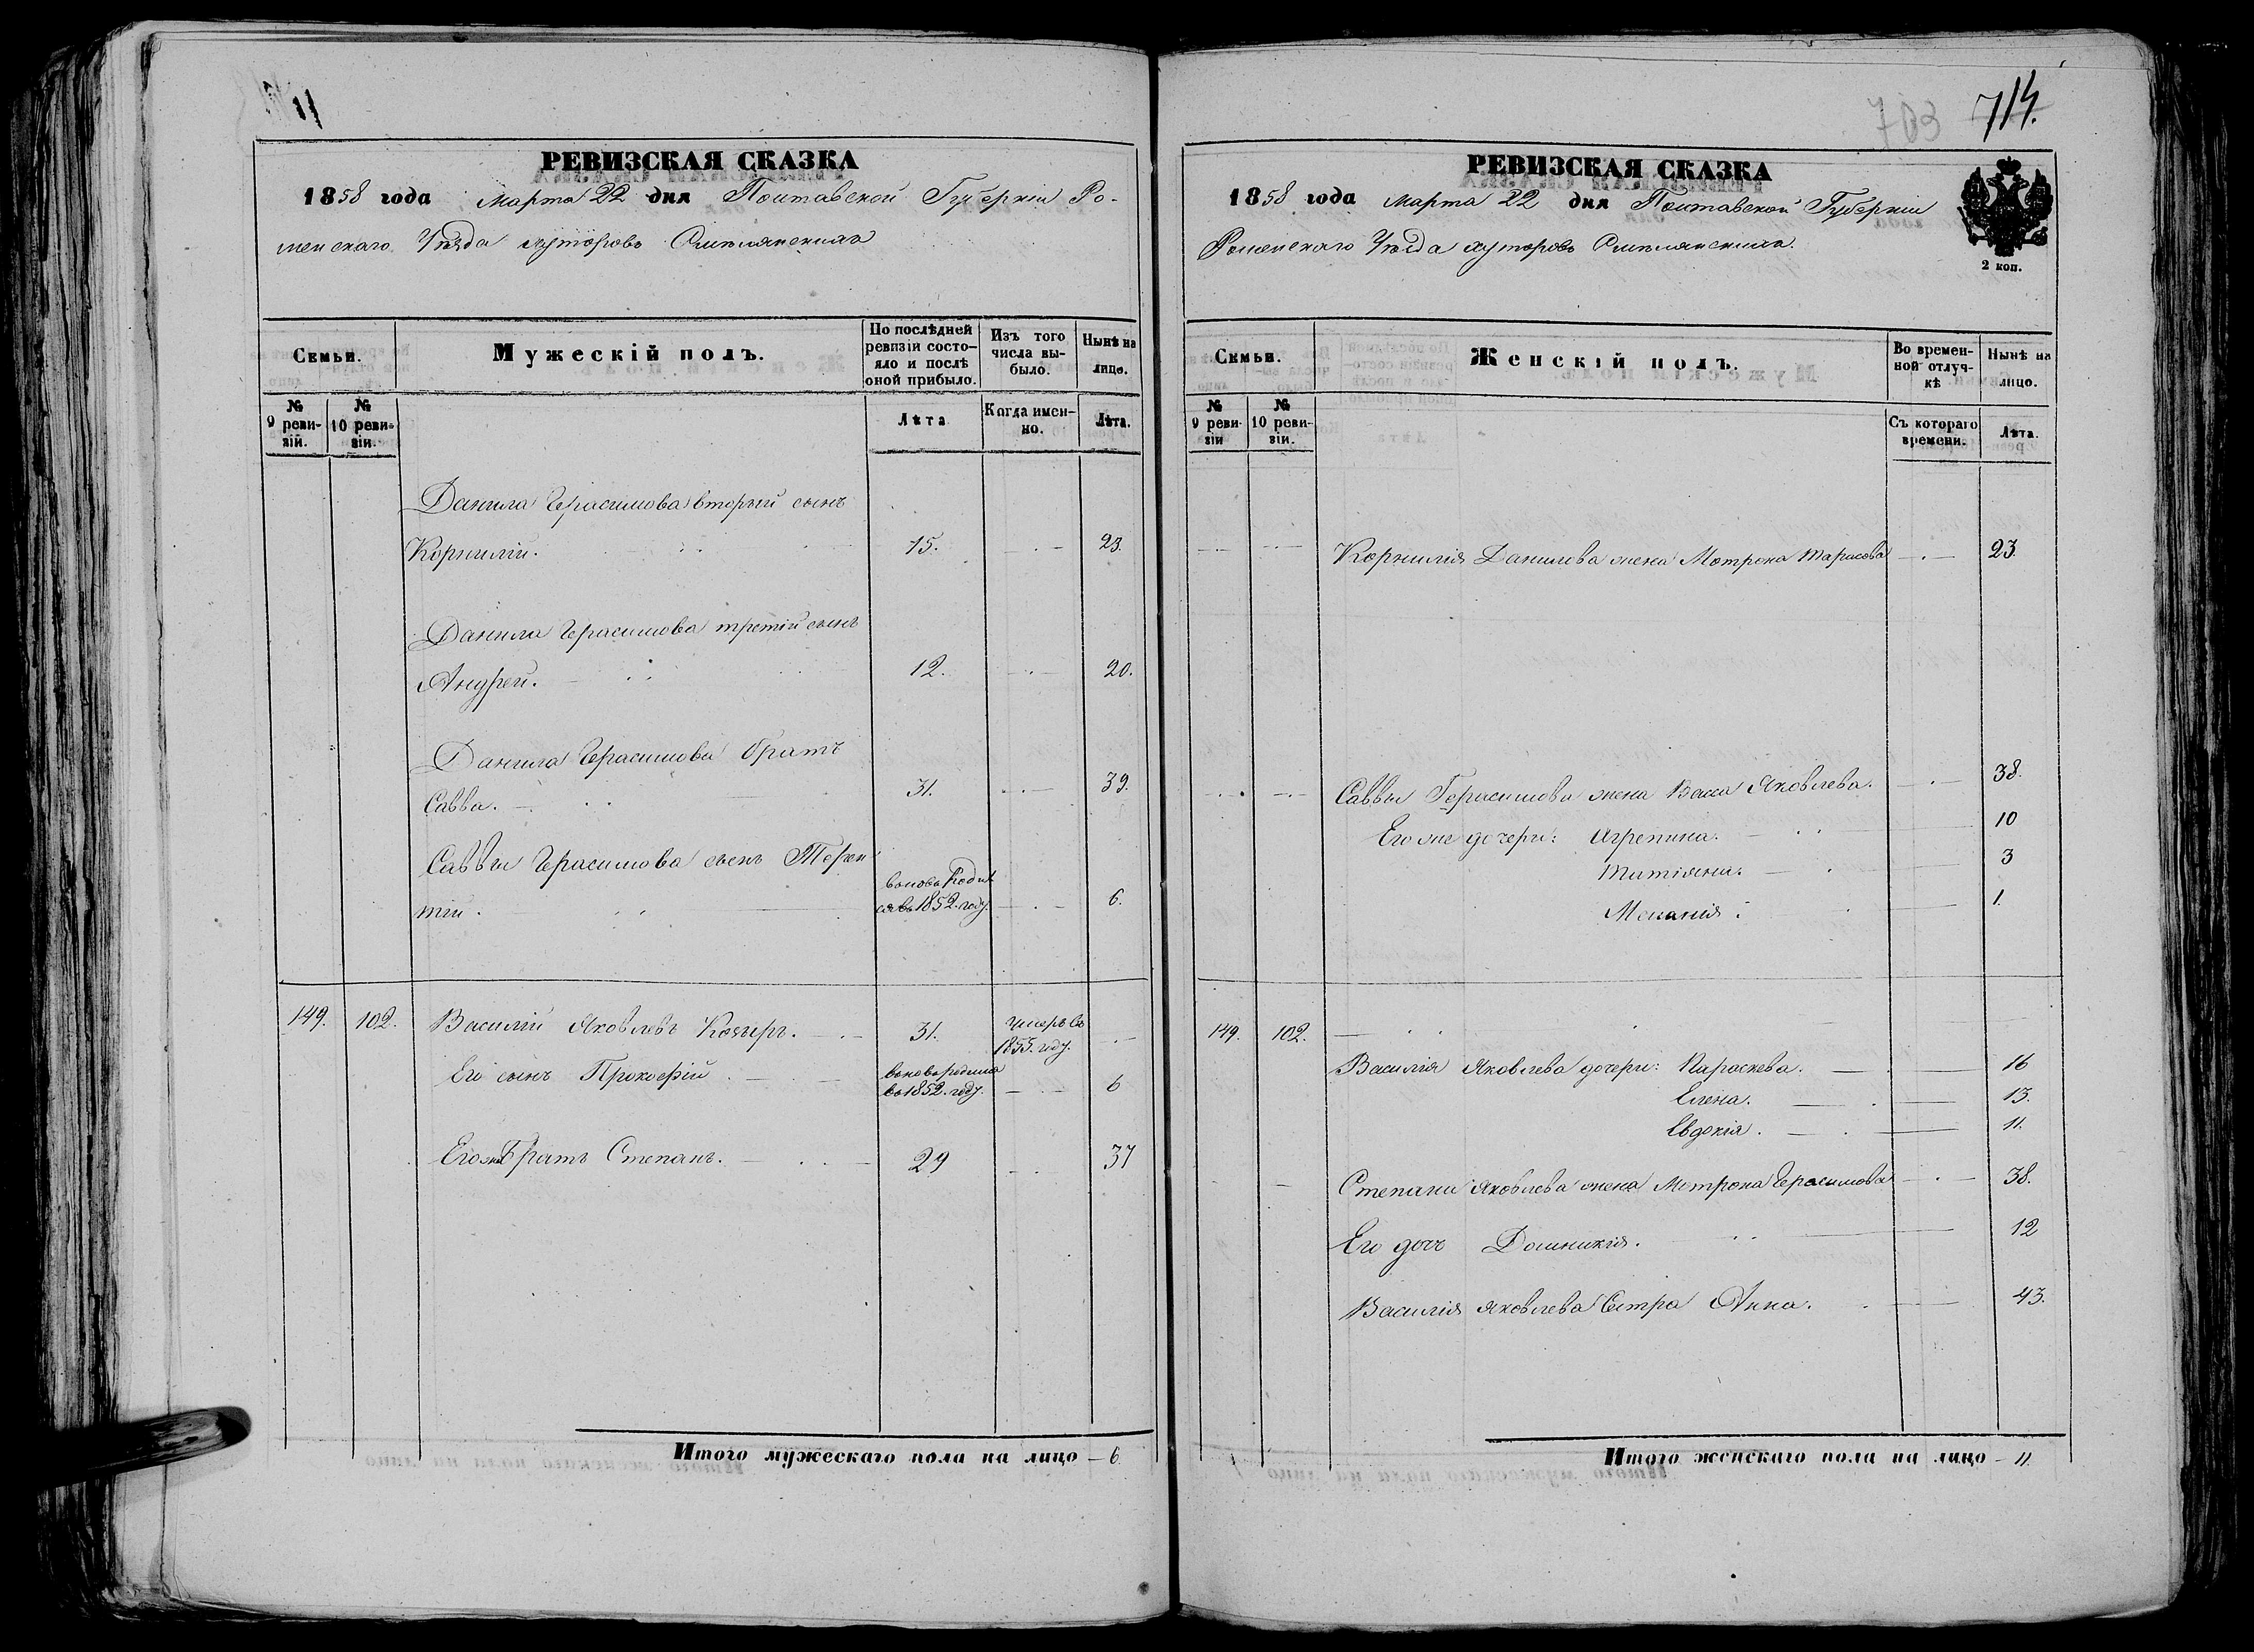 РЕВИЗСКАЯ СКАЗКА
1858 года Марта 22 дня Полтавской Губерніи Ро-
менскаго Уѣзда хуторовъ
Семьи.
Мужескій полъ.
По послѣдней ревизіи состо-
яло и послѣ
оной прибыло.
Изъ того
числа вы-
было.
Нынѣ на
лицо.
№
9 реви-
зій.
№
10 реви-
зіи.
Лѣта
Когда имен-
но.
Лѣта.
Данила Герасимова вторый сынъ
Корнилій. 15. 23.
Данила Герасимова третій сынъ
Андрей. 12. 20.
Данила Герасимова братъ
Савва. 31. 39.
Саввы Герасимова сынъ Терен
тій. вновь родил
ся въ 1852. году. 6.
149. 102. Василій Яковлевъ 31. умеръ въ
1855. году.
Его сынъ Прокофій. вновь родился
въ 1852. году. 6
Его же братъ Степанъ. 29 37
Итого мужескаго пола на лицо – 6.
703 714.
РЕВИЗСКАЯ СКАЗКА
1858 года Марта 22 дня Полтавской Губерніи
Роменскаго Уѣзда хуторовъ
2 коп.
Семьи.
Женскій полъ.
Во времен-
ной отлуч-
кѣ
Нынѣ на
лицо.
№
9 реви-
зіи
№
10 реви-
зіи.
Съ котораго
времени.
Лѣта.
Корнилія Данилова жена Мотрона Тарасова 23.
Саввы Герасимова жена Васса Яковлева. 38.
Его же дочери: Агрепина. 10
Татіяна. 3
Меланія. 1.
149. 102.
Василія Яковлева дочери: Параскева. 16
Елена. 13.
Евдокія. 11.
Степана Яковлева жена Мотрона Герасимова 38.
Его дочь Домникія. 12
Василія Яковлева Сестра Анна. 43.
Итого женскаго пола на лицо – 11.